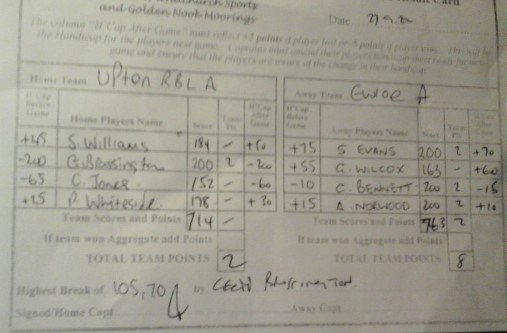 Sports
and Golden Nook Moorings
Card
Date 27.9.
The column "H'Cap After Game" must reflect +5 points if player lost or -5 points if player won. This will be
the Handicap for the players next game. Captains must amend their players handicap
game and ensure that the players are aware of the change in their handicap
Home Team UPTON RBL A
H'Cap Before Game Home Players Name Score Team Pts H'Cap After Game
+45 S. Williams 184 - +50
-200 200 2 -200
-65 C. Jones 152 - -60
+25 P. Whiteside 178 - +30
Team Scores and Points 714 -
If team won Aggregate add Points
TOTAL TEAM POINTS 2
Away Team A
H'Cap Before Game Away Players Name Score Team Pts H'Cap After Game
+75 S EVANS 200 2 +70
+55 G. WILCOX 163 - +60
-10 C. BENNETT 200 2 -15
+15 A. NORWOOD 200 2 +10
Team Scores and Points 763 2
If team won Aggregate add Points
TOTAL TEAM POINTS 8
Highest Break of 105, 70 by
Signed Home Capt
Away Capt